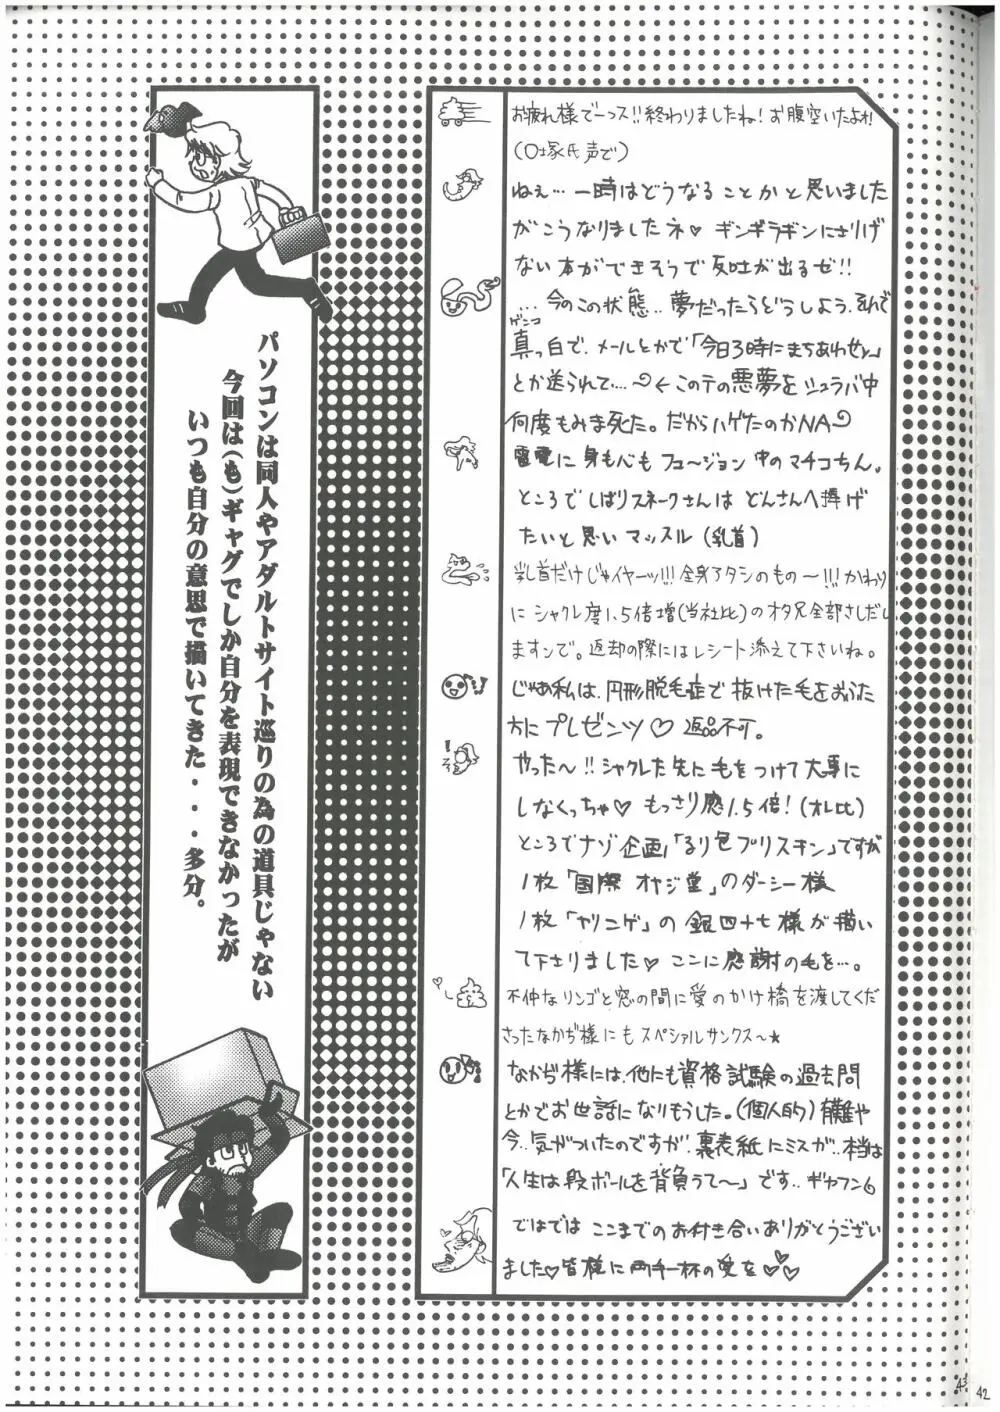 お疲れ様でーっス!!終わりましたね!お腹空いたよォ!
(口塚氏声で)
ねぇ…一時はどうなることかと思いました
がこうなりましたネ♥ ギンギラギンにさりげ
ない本ができそうで反吐が出るぜ!!
…今のこの状態..夢だったらどうしよう.それで
ゲンコ
真っ白で.メールとかで「今日3時にまちあわせy」
とか送られて….〜←このテの悪夢をシュラバ中
何度もみま死た。だからハゲたのかNA
雷電に身も心もフュ〜ジョン中のマチコちん。
ところでしばりスネークさんは どんさんへ捧げ
たいと思いマッスル(乳首)
乳首だけじゃイヤーッ!!!全身アタシのもの〜!!!かわり
にシャクレ度1.5倍増(当社比)のオタ兄全部さしだし
ますンで。返却の際にはレシート添えて下さいね。
じゃあ私は、円形脱毛症で抜けた毛をおうた
方にプレゼンツ♡返品不可。
やった〜!!シャクレた先に毛をつけて大事に
しなくっちゃ♥ もっさり感1.5倍!(オレ比)
ところでナゾ企画「るり色プリスキン」ですが
1枚「国際オヤジ堂」のダーシー様
1枚「ヤリニゲ」の銀四十七様が描い
て下さりました♥ ここに感謝の毛を…。
不仲なリンゴと窓の間に愛のかけ橋を渡してくだ
さったなかぢ様にもスペシャルサンクス〜★
なかぢ様には、他にも資格試験の過去問
とかでお世話になりもうした。(個人的)有難や
今..気がついたのですが.裏表紙にミスが..本当は
「人生は段ボールを背負うて〜」です..ギャフン
ではでは ここまでのお付き合いありがとうござい
ました♥皆様に両手一杯の愛を♥♡♡
パソコンは同人やアダルトサイト巡りの為の道具じゃない
今回は(も)ギャグでしか自分を表現できなかったが
いつも自分の意思で描いてきた・・・多分。
43
42